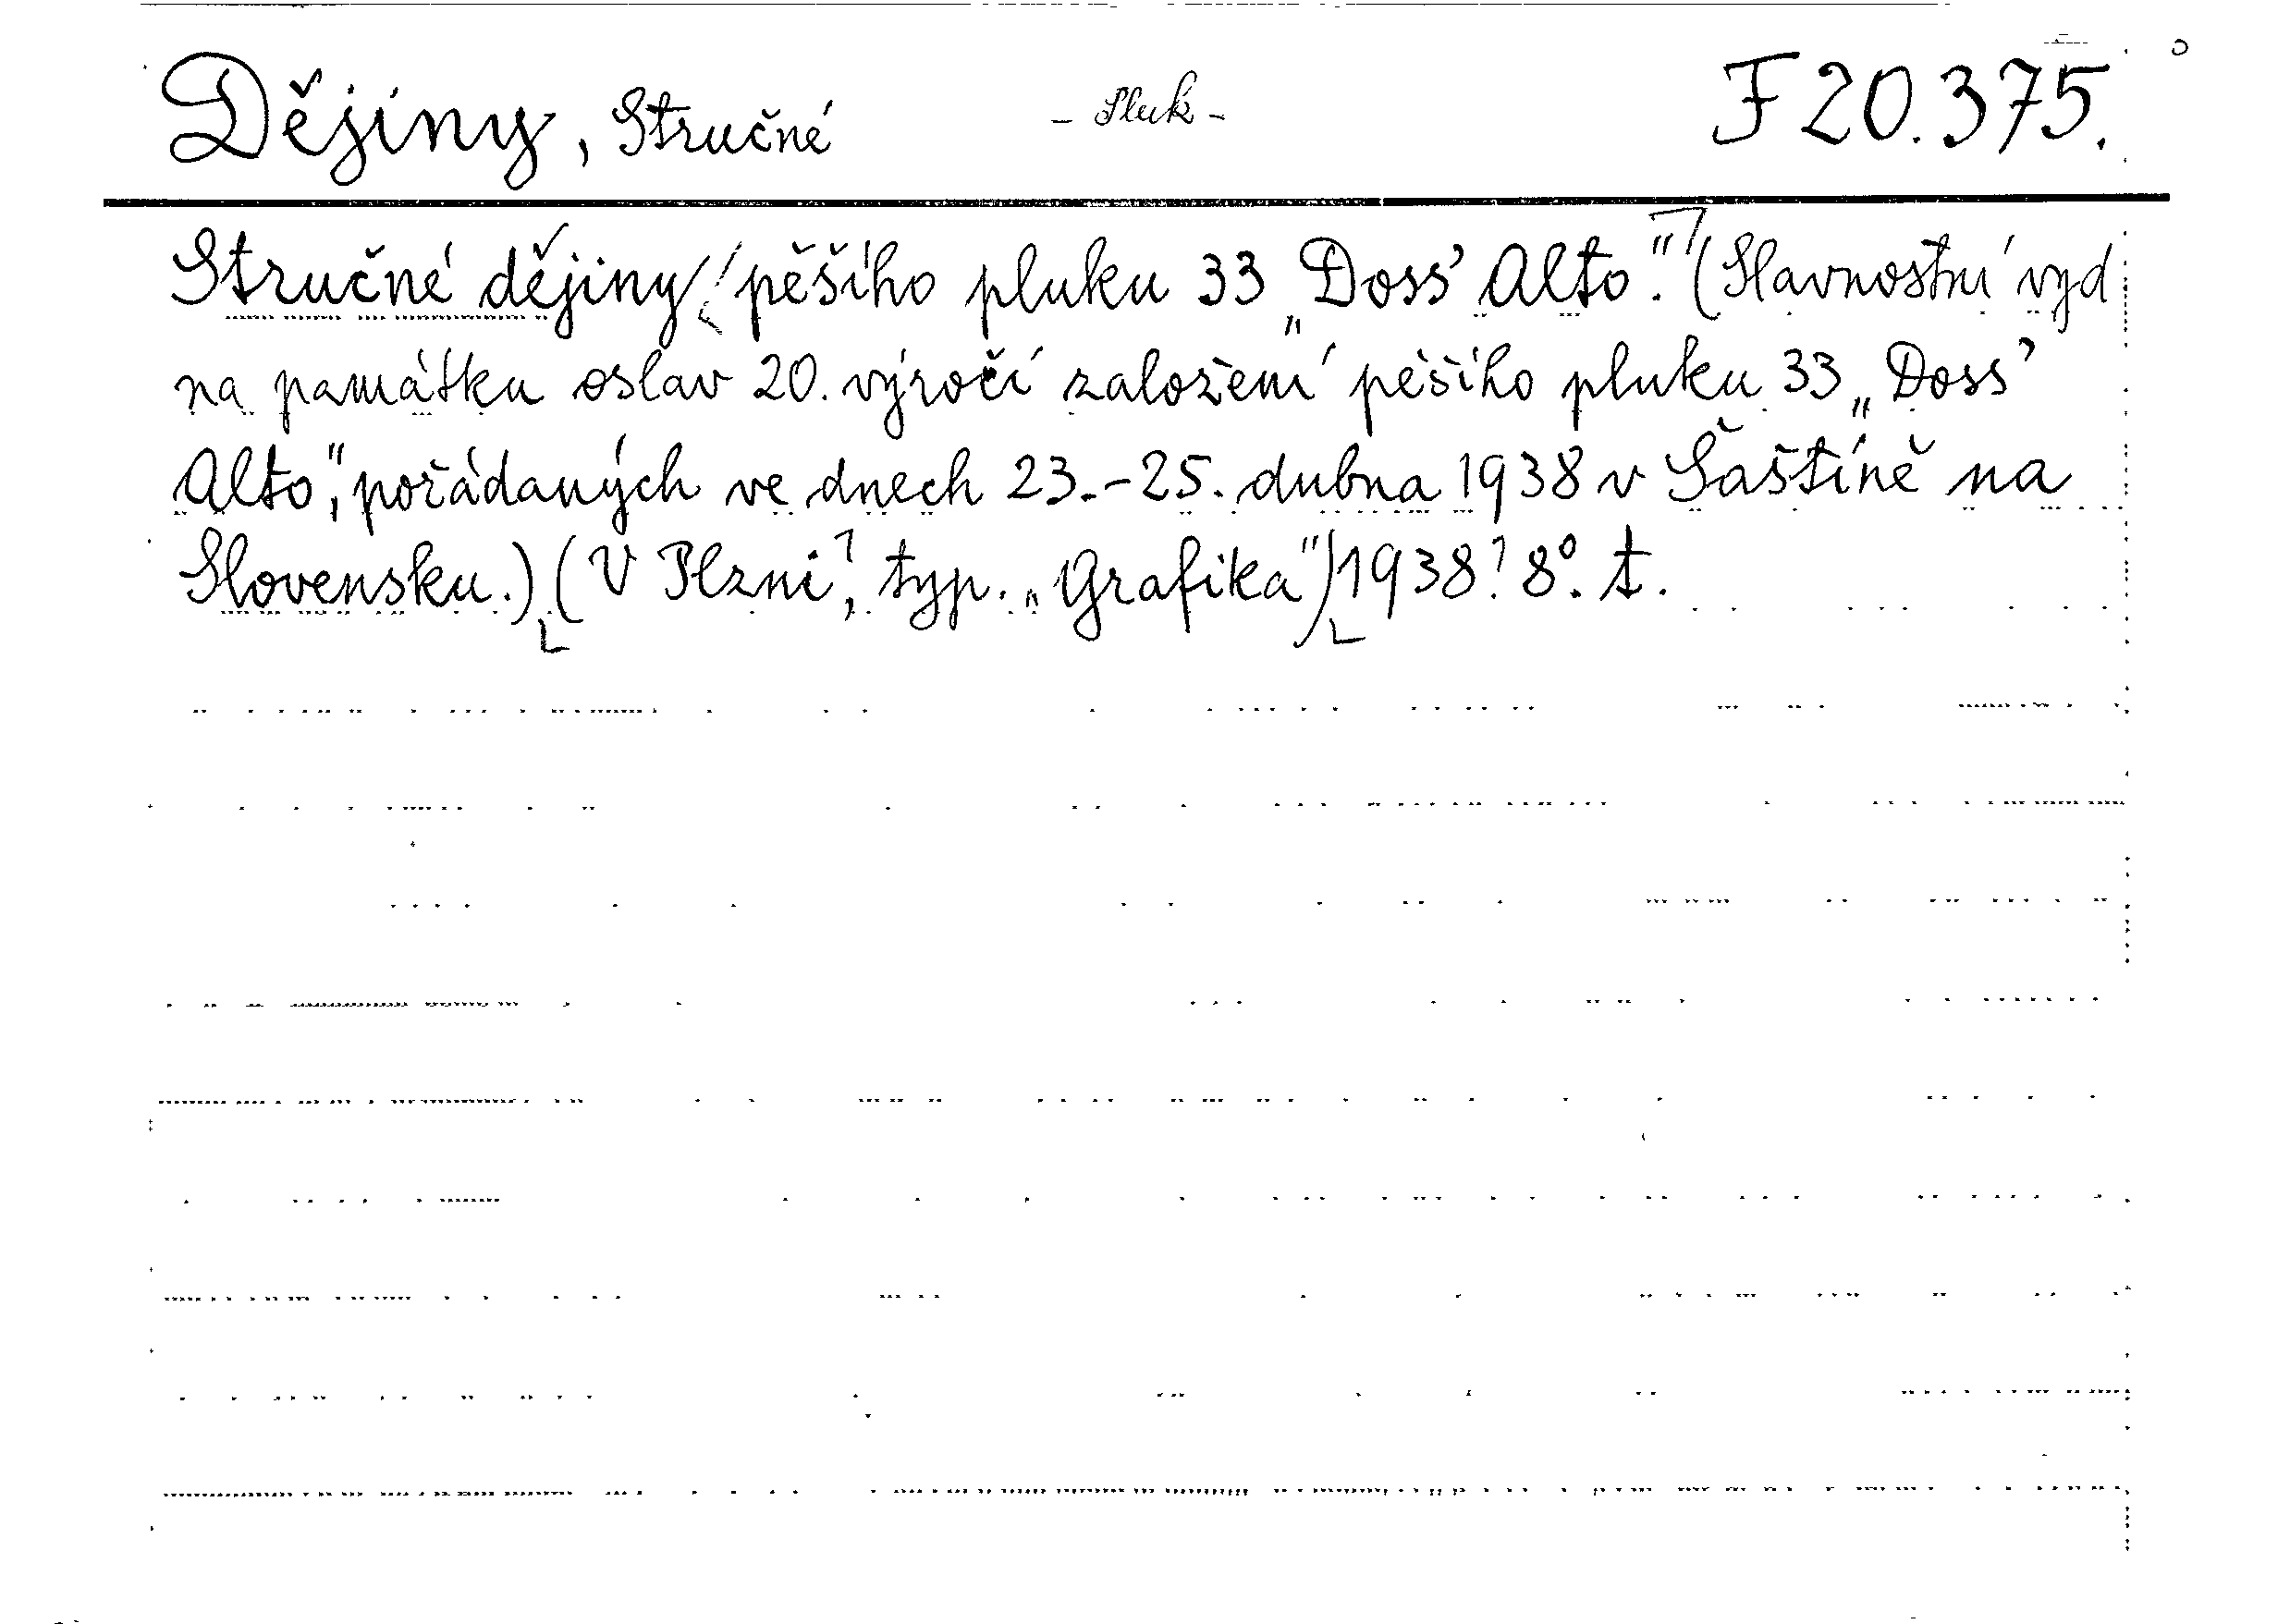 Dějiny, Stručné - Pluk - F 20.375.
Stručné dějiny pěšího pluku 33 „Doss' Alto." (Slavnostní vyd
na památku oslav 20. výročí založení pěšího pluku 33 „Doss'
Alto", pořádaných ve dnech 23.-25. dubna 1938 v Šaštíně na
Slovensku.) (V Plzni, typ. „Grafika") 1938. 8°. t.